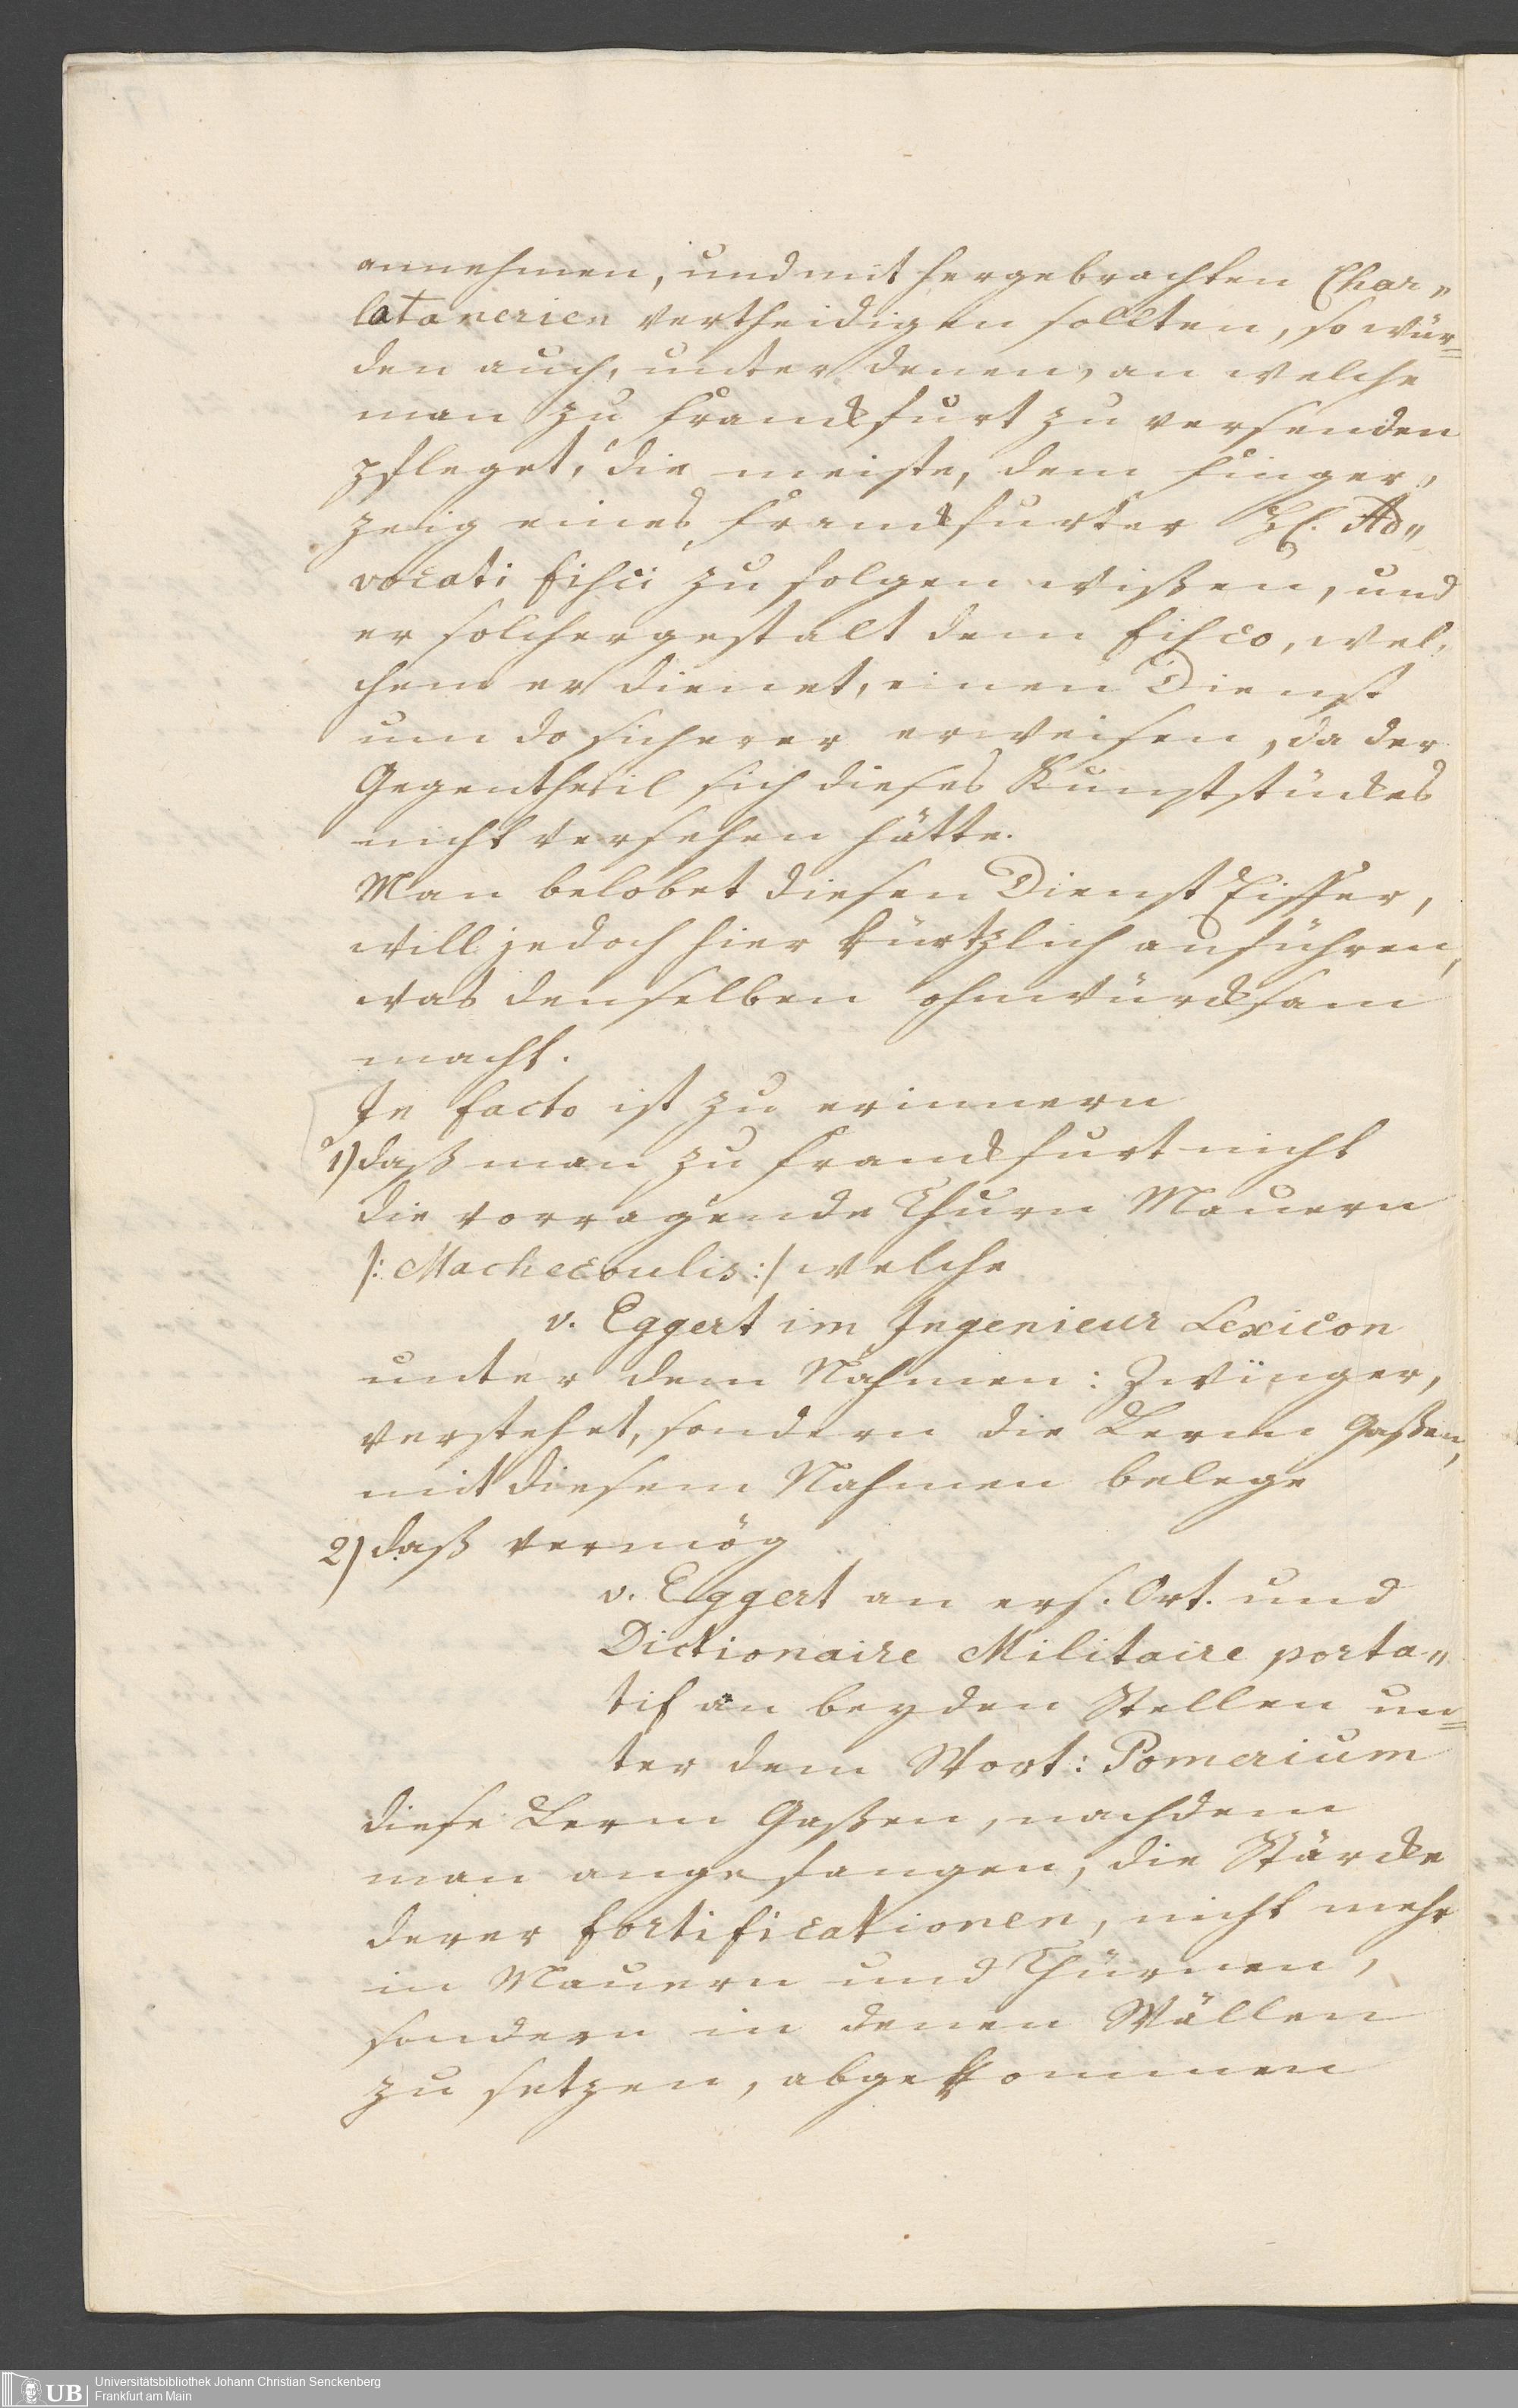 annehmen, und mit hergebrachten Char„
latanerien vertheidigen sollten, so wür=
den auch, unter denen, an welche
man zu Franckfurt zu versenden
pfleget, die meiste, dem Finger,
zeig eines Franckfurter H. Ad„
vocati fisci zu folgen wißen, und
er solchergestalt dem fisco, wel,
chem er dienet, einen Dienst
um do sicherer erweisen, da der
Gegentheil sich dieses Kunststückes
nicht versehen hätte.
Man belobet diesen Dienst Eiffer,
will jedoch hier kürtzlich anführen,
was denselben ohnwürcksam
macht.
In facto ist zu erinnern
1) daß man zu Franckfurt nicht
die vorragende Thurn Mauern
/: Machecoulis :/ welche
v. Eggert im Ingenieur Lexicon
unter dem Nahmen: Zwinger,
verstehet, sondern die Lerm Gaßen,
mit diesem Nahmen belege
2) daß vermög
v. Eggert an ers. Ort. und
Dictionaire Militaire porta„
tif an beyden Stellen un=
ter dem Wort: Pomerium
diese Lerm Gaßen, nachdem
man angefangen, die Stärcke
derer fortificationen, nicht mehr
in Mauern und Thürnen,
sondern in denen Wällen
zu setzen, abgekommen
UB
Universitätsbibliothek Johann Christian Senckenberg
Frankfurt am Main